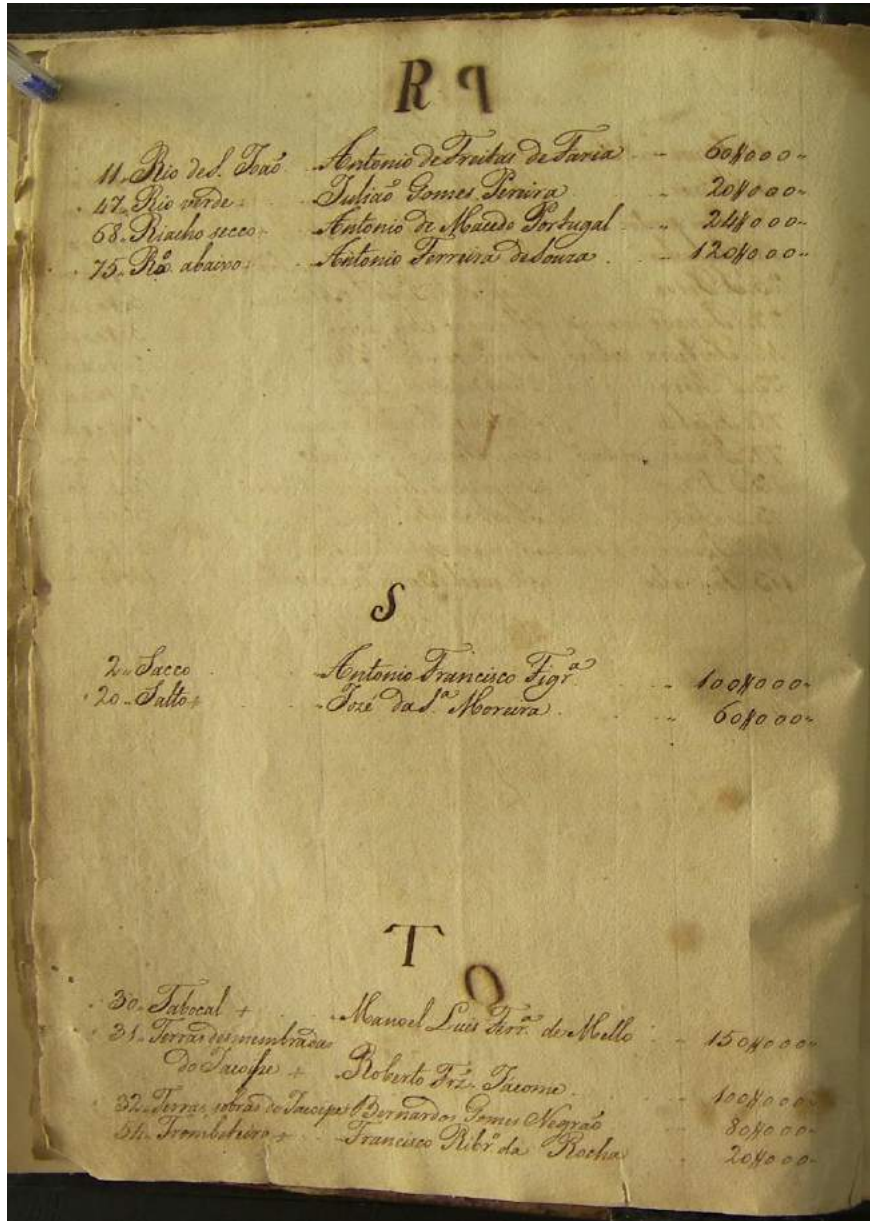 R
11. Rio de S. João Antonio de Freitas de Faria 60$000
47. Rio verde Julião Gomes Pereira 20$000
68. Riacho secco Antonio de Macedo Portugal 24$000
75. Rº abaixo Antonio Ferreira de Souza 120$000
S
2. Sacco Antonio Francisco Figrª 100$000
20. Salto + José da Sª Moreira 60$000
T
30. Tabocal + Manoel Luis Ferrª de Mello 150$000
31. Terras desmembradas
do Jacoipe + Roberto Frz. Jacome 100$000
32. Terras sobras do Jacoipe Bernardos Gomes Negrão 80$000
54. Trombeteiro + Francisco Ribrº da Rocha 20$000